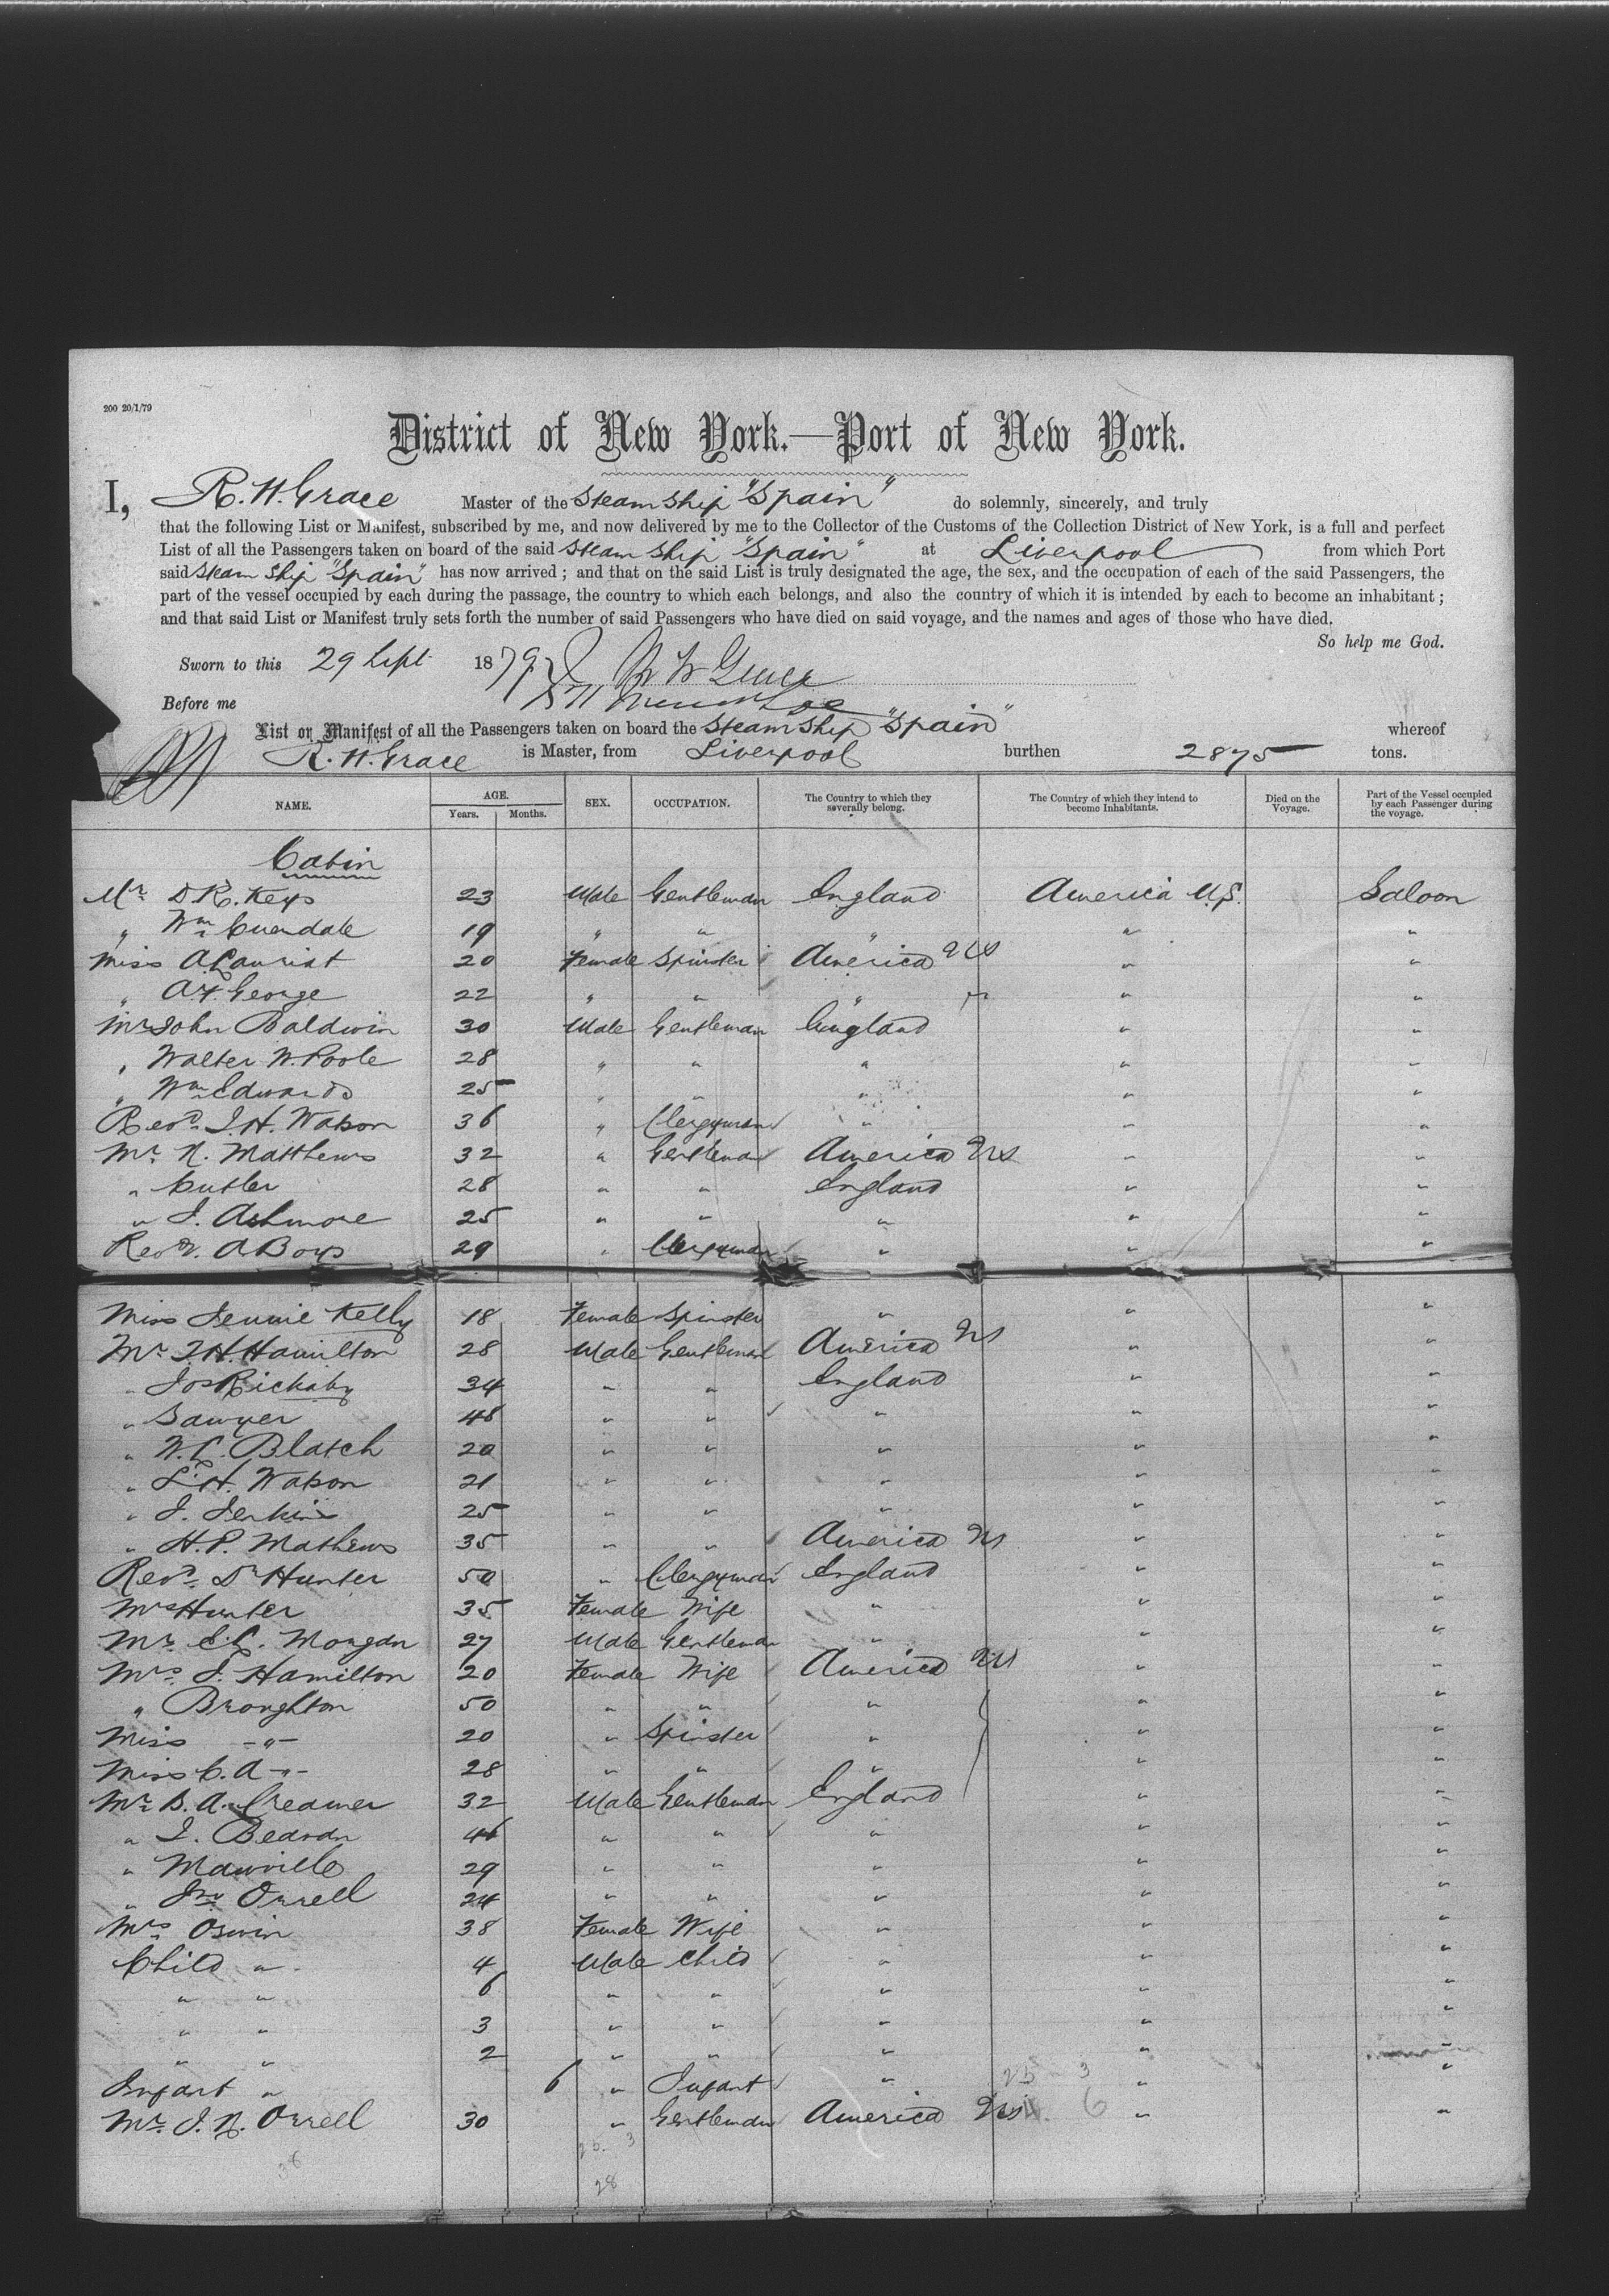 200 20/1/79
District of New York.—Port of New York.
I, R. W. Grace Master of the Steam Ship "Spain" do solemnly, sincerely, and truly
that the following List or Manifest, subscribed by me, and now delivered by me to the Collector of the Customs of the Collection District of New York, is a full and perfect
List of all the Passengers taken on board of the said Steam Ship "Spain" at Liverpool from which Port
said Steam Ship "Spain" has now arrived; and that on the said List is truly designated the age, the sex, and the occupation of each of the said Passengers, the
part of the vessel occupied by each during the passage, the country to which each belongs, and also the country of which it is intended by each to become an inhabitant;
and that said List or Manifest truly sets forth the number of said Passengers who have died on said voyage, and the names and ages of those who have died.
So help me God.
Sworn to this 29 Sept 1879 R W Grace
Before me
List or Manifest of all the Passengers taken on board the Steam Ship "Spain" whereof
R. W. Grace is Master, from Liverpool burthen 2875 tons.
NAME. AGE. Years. Months. SEX. OCCUPATION. The Country to which they severally belong. The Country of which they intend to become Inhabitants. Died on the Voyage. Part of the Vessel occupied by each Passenger during the voyage.
Cabin
Mr D R. Keys 23 Male Gentleman England America U.S. Saloon
" Wm Cuendale 19 " " " " "
Miss A Lauriat 20 Female Spinster America US " "
" A. F. George 22 " " " " "
Mr John Baldwin 30 Male Gentleman England " "
" Walter W. Poole 28 " " " " "
" Wm Edwards 25 " " " " "
Revd J. H. Watson 36 " Clergyman " " "
Mr N. Matthews 32 " Gentleman America US " "
" Cutler 28 " " England " "
" J. Ashmore 25 " " " " "
Revd. A Boys 29 " Clergyman " " "
Miss Jennie Kelly 18 Female Spinster " " "
Mr J. H. Hamilton 28 Male Gentleman America US " "
" Jos Rickaby 34 " " England " "
" Sawyer 48 " " " " "
" W. C. Blatch 20 " " " " "
" L. H. Watson 21 " " " " "
" J. Jenkins 25 " " " " "
" H. P. Mathews 35 " " America US " "
Revd. Dr Hunter 50 " Clergyman England " "
Mrs Hunter 35 Female Wife " " "
Mr. E. C. Morgan 27 Male Gentleman " " "
Mrs. J. Hamilton 20 Female Wife America US " "
" Broughton 50 " " " " "
Miss -"- 20 " Spinster " " "
Miss C. A -"- 28 " " " " "
Mr B. A. Creamer 32 Male Gentleman England " "
" J. Beardn " " " " "
" Manville 29 " " " " "
" Jno Orrell 24 " " " " "
Mrs Oswin 38 Female Wife " " "
Child " 4 Male Child " " "
" " 6 " " " " "
" " 3 " " " " "
" " 2 " " " " "
Infant " 6 " Infant " " "
Mr. J. N. Orrell 30 " Gentleman America US " "
25 3
6
25 3
28